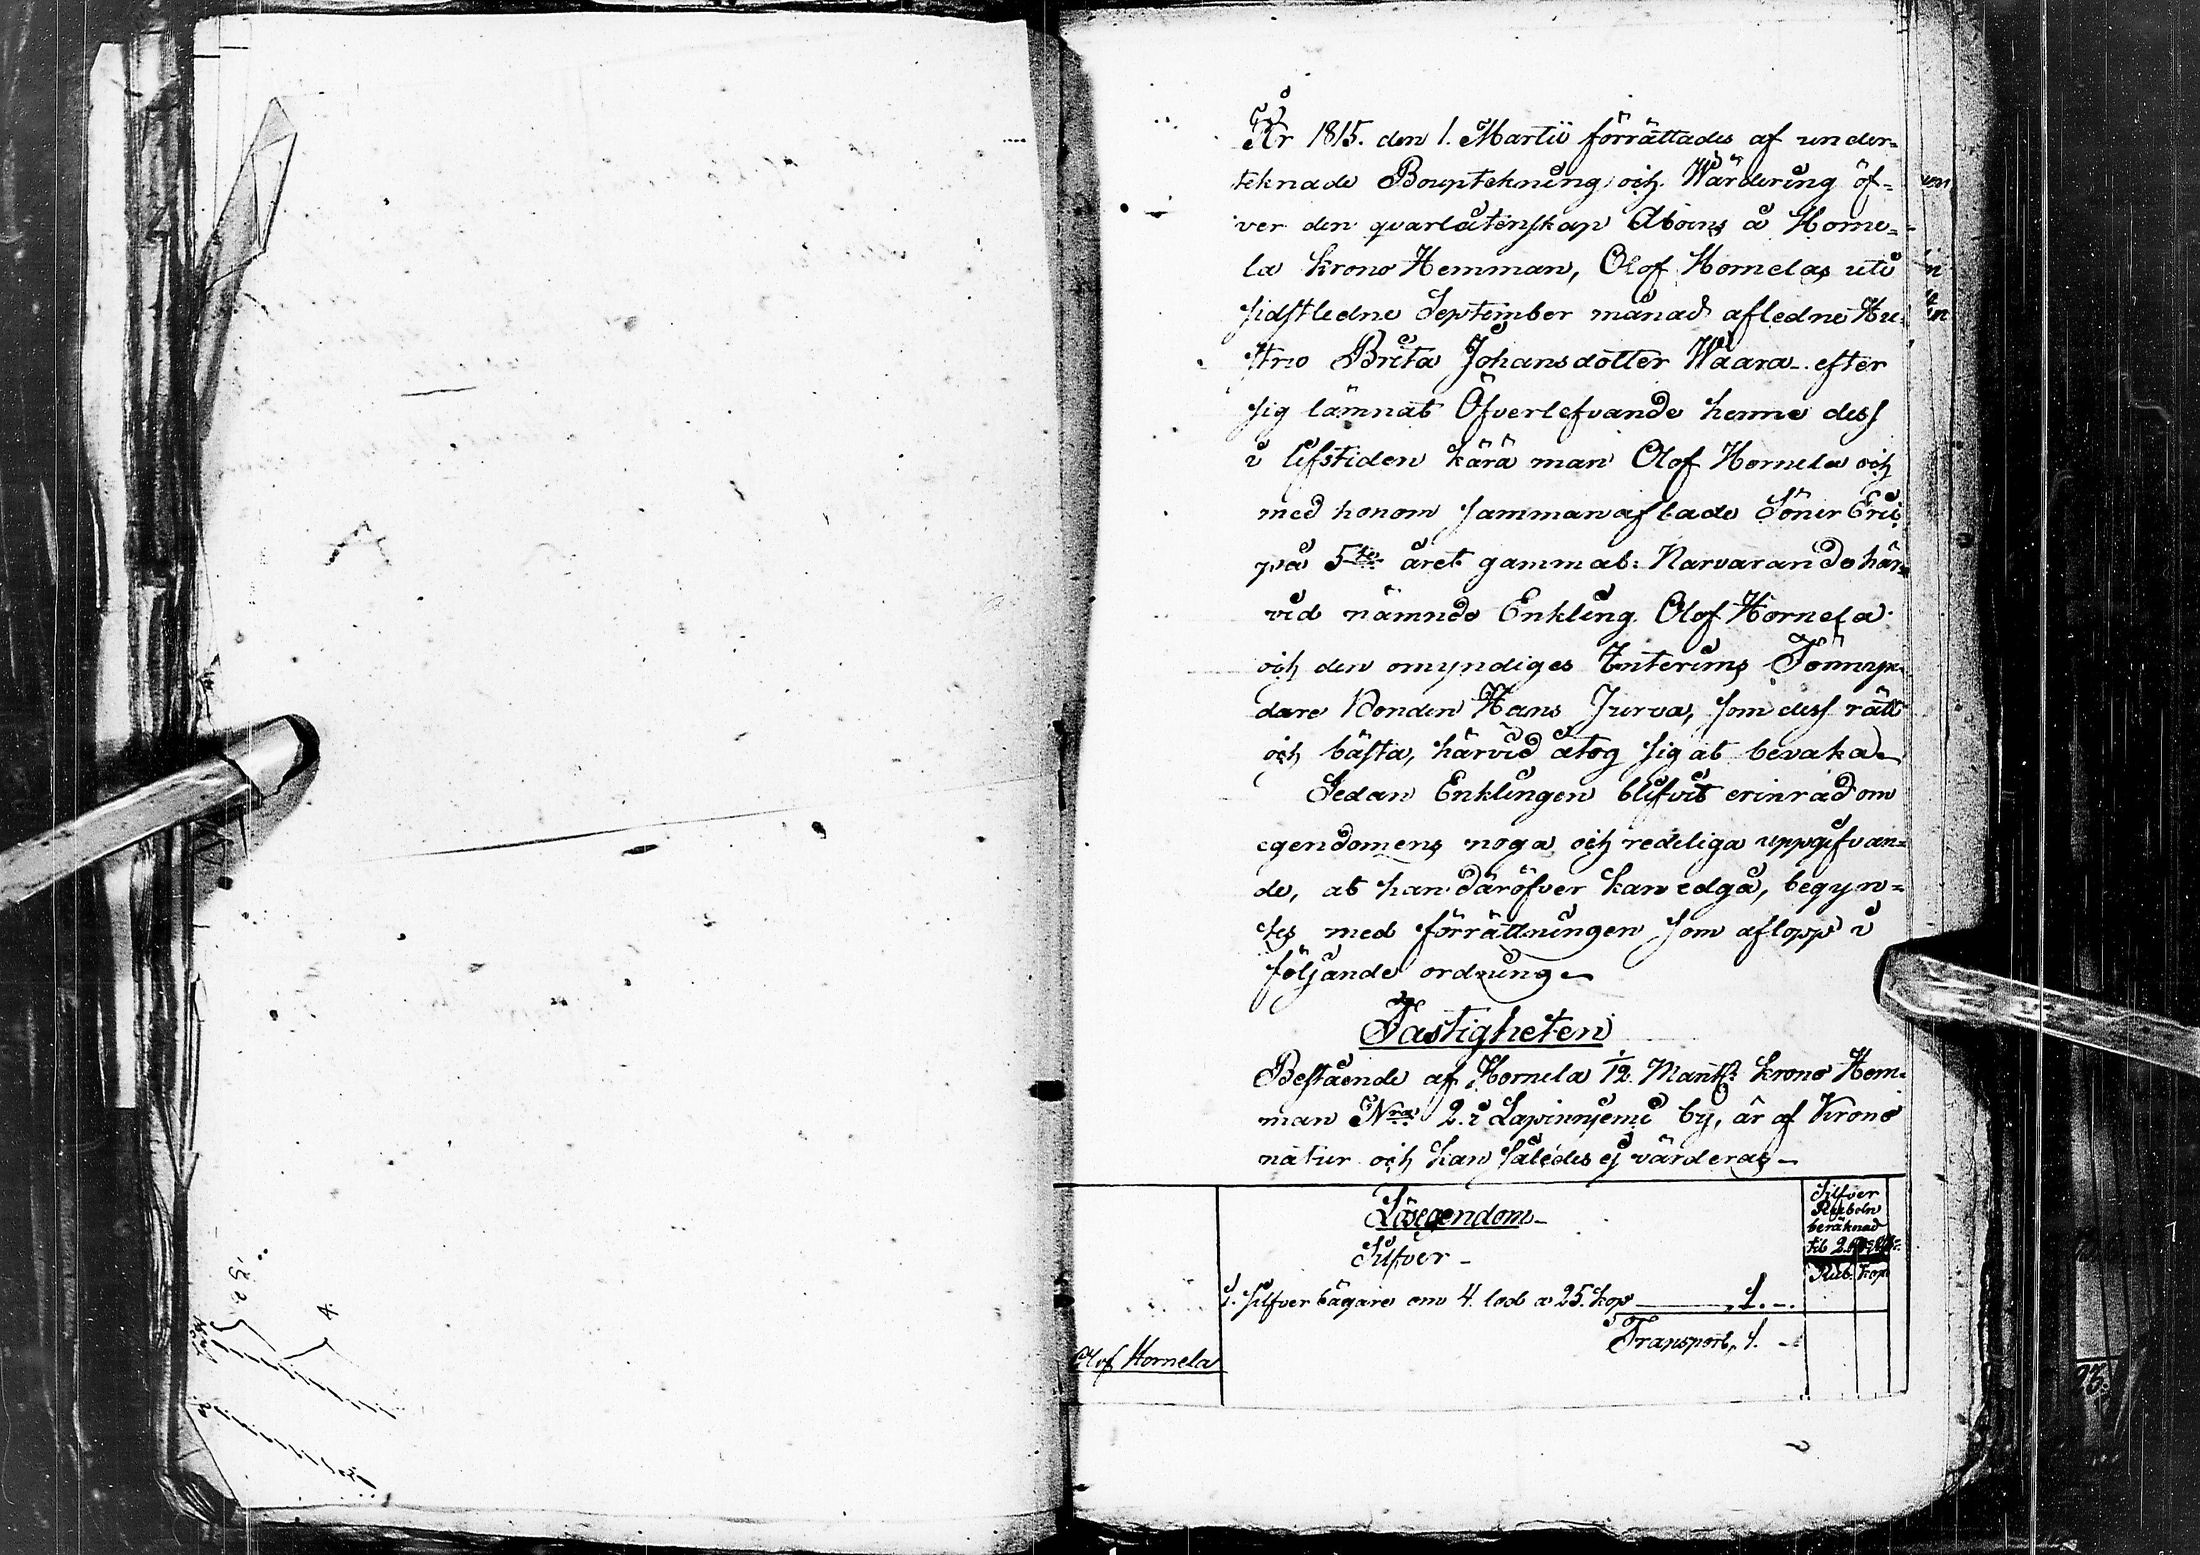 År 1815. den 1. Martii förrättades af under=
teknade Boupteknung och Wärdering öf=
ver den qvarlåtenskap Åboens å Horne=
la Krono Hemman, Olof Hornelas uti
sidstledne September månad afledne Hu=
stru Brita Johansdotter Waara efter
sig lämnat Öfverlefvande henne dess
i lifstiden kära man Olof Hornela och
med honom sammanaflade Söner Eric
på 5te året gammal. Narvarande här=
vid nämnde Enkling Olof Hornela
och den omyndiges Interims Förmyn=
dare Bonden Hans Jurva, som dess rätt
och bästa, härvid åtog sig at bevaka
Sedan Enklingen blifvit erinrad om
egendomens noga och redeliga uppgifvan=
de, at han däröfver kan edgå, begyn=
tes med förrättningen som aflopp i
följande ordning
Fastigheten
Bestående af Hornela 1/12 Mantls Krono Hem=
man Nro 2. i Lapinnjemi by, är af Krono
natur och kan således ej värderas
Lösegendom
Silfver
Silfver
Rubeln
beräknad
til 2.
Rub. Kop
1. silfver bägare om 4. lod a 25. kop 1. -
Transport, 1. -
Olof Hornela